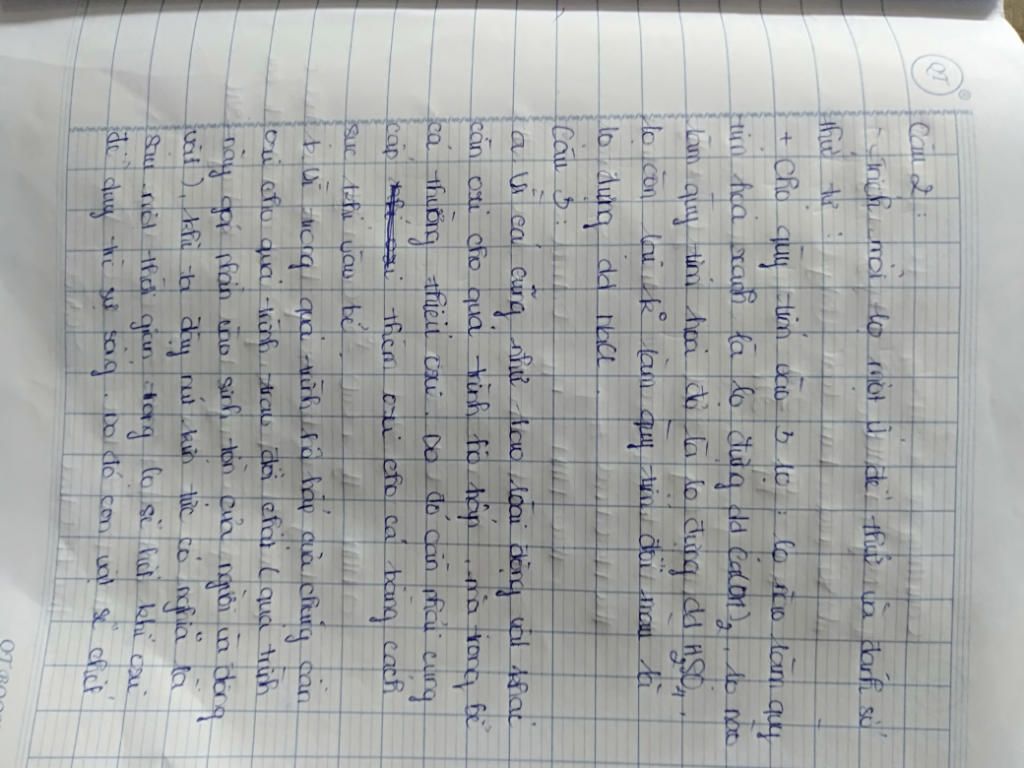 07
Câu 2:
- Trích mỗi lọ một ít để thử và đánh số
thứ tự.
+ Cho quỳ tím vào 3 lọ: lọ nào làm quỳ
tím hoá xanh là lọ đựng dd Ca(OH)2, lọ nào
làm quỳ tím hoá đỏ là lọ đựng dd H2SO4,
lọ còn lại k° làm quỳ tím đổi màu là
lọ đựng dd NaCl.
Câu 3:
a. Vì cá cũng như bao loài động vật khác
cần oxi cho quá trình hô hấp, mà trong bể
cá thường thiếu oxi. Do đó cần phải cung
cấp thêm oxi cho cá bằng cách
sục khí vào bể
b. Vì trong quá trình hô hấp của chúng cần
oxi cho quá trình trao đổi chất (quá trình
này góp phần vào sinh tồn của người và động
vật), khi ta đậy nút kín tức có nghĩa là
sau một thời gian trong lọ sẽ hết khí oxi
để duy trì sự sống. Do đó con vật sẽ chết